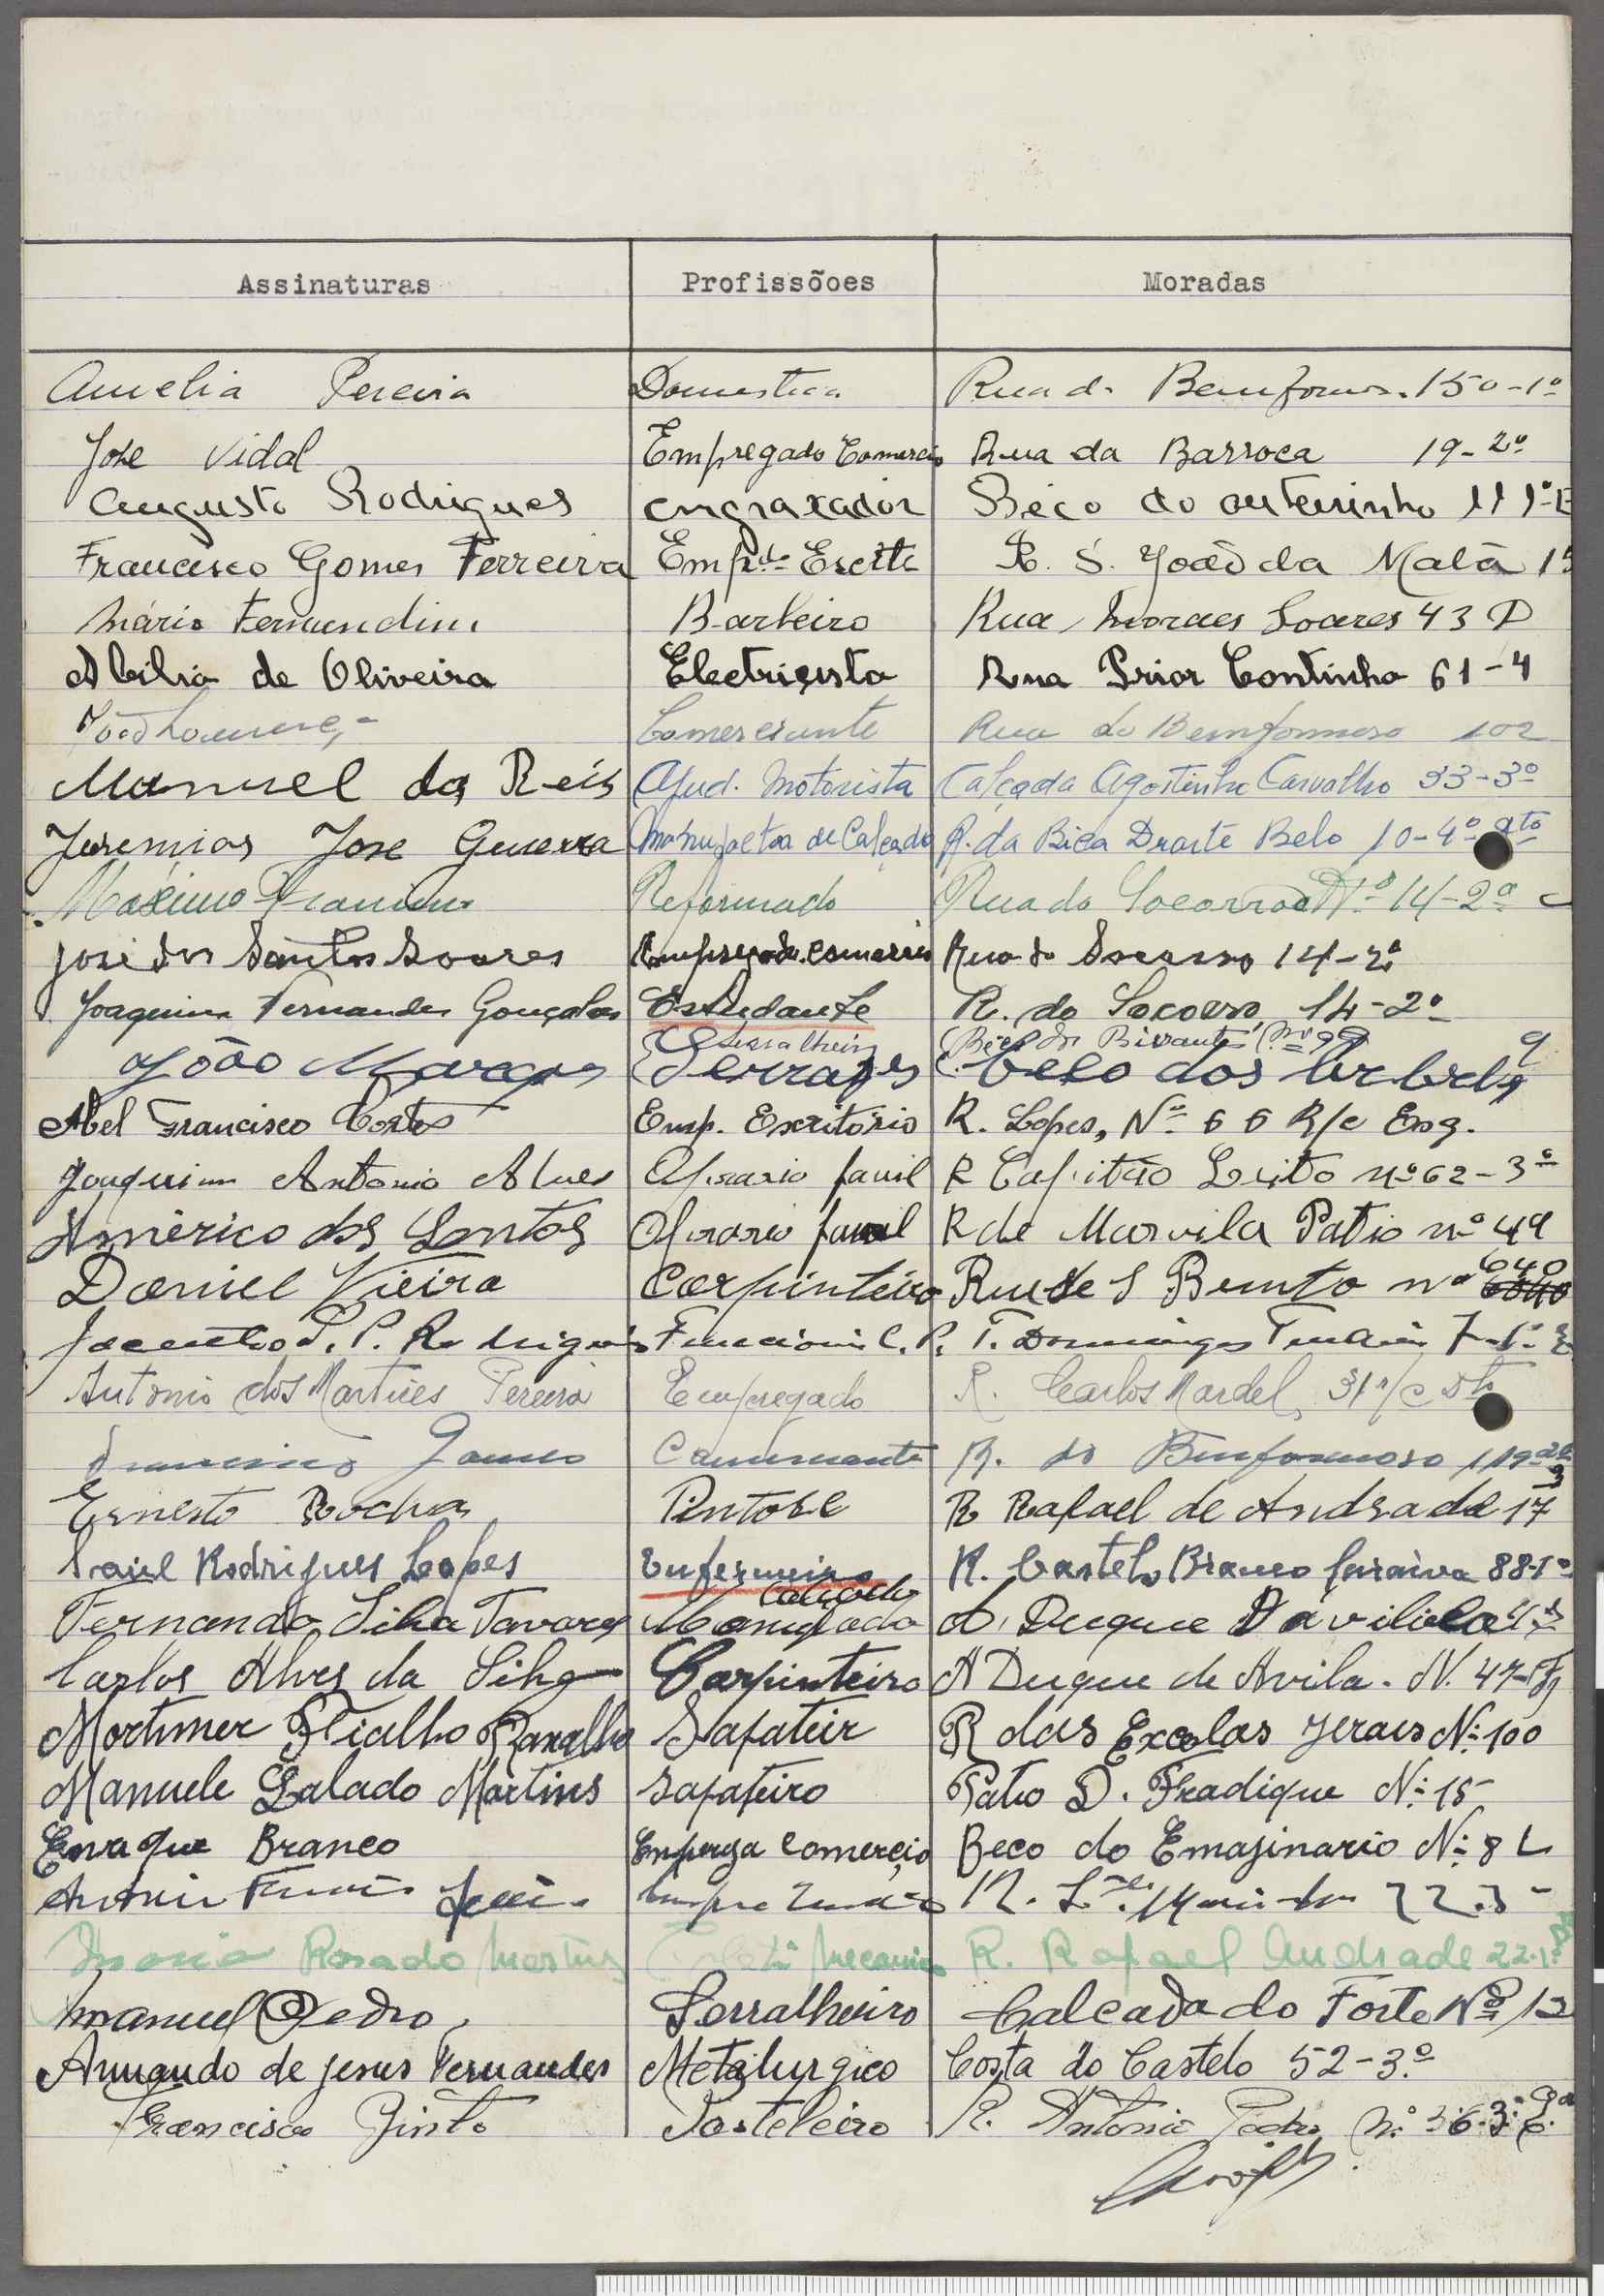 Assinaturas Profissõoes Moradas
Amelia Pereira Domestica Rua do Bemformoso 150-1º
José Vidal Empregado Comercio Rua da Barroca 19-2º
Augusto Rodrigues engraxador Beco do outeirinho 11 1º E
Francisco Gomes Ferreira Emp.do Escrte R. S. João da Mata 15
Mário Fernandim Barbeiro Rua Moraes Soares 43 D
Abilio de Oliveira Electricista Rua Prior Coutinho 61-4
João Lourenço Comerciante Rua do Bemformoso 102
Manuel da Reis Ajud. Motorista Calçada Agostinho Carvalho 33-3º
Jeremias Jose Guerra Manufactor de Calçado R. da Bica Drarte Belo 10-4º dto
Maximo Reformado Rua do Socorro Nº 14-2º
José dos Santos Soares Empregado comercio Rua do Socorro 14-2º
Joaquim Fernandes Gonçalves Estudante R. do Socorro, 14-2º
Serralheiro Beco dos Nº 99
João Marques Serrages Beco dos
Abel Francisco Costa Emp. Escritório R. Lopes, Nº 66 R/c Esq.
Joaquim Antonio Alves Oprario favil R Capitão Leito nº 62-3º
Américo dos Santos Oprario favil R de Marvila Patio nº 49
Daniel Vieira Carpinteiro Rua de S Bento nº 640
Jacintho P. Rodrigues Funcion. C. P. T. Domingos 7-1º E
Antonio dos Martires Pereira Empregado R. Carlos Mardel, 31 r/c Dto
Francisco Gomes Comerciante R. do Bemformoso 119
Ernesto Rocha Pintore R Rafael de Andrade 17 3
Saúl Rodrigues Lopes Enfermeiro R. Castelo Branco Saraiva 88-1º
Fernando Silva Tavares A. Duque Davilila
Carlos Alves da Silva Carpinteiro A Duque de Avila. N. 47
Mortimer Fialho Ramalho Sapateir R das Excolas Jerais Nº 100
Manuele Salado Martins Sapateiro Patio D. Fradique Nº 15
Enraque Branco Emperga Comerçio Beco do Emaginario Nº 8 L
22.3
Maria Rosado Martins Mecanico R. Rafael Andrade 22-1º
Manuel Pedro Serralheiro Calcada do Forte Nº 12
Armando de Jesus Fernandes Metalurgico Costa do Castelo 52-3º
Francisco Pinto Pasteleiro R. Antonio Pedro Nº 36-3º